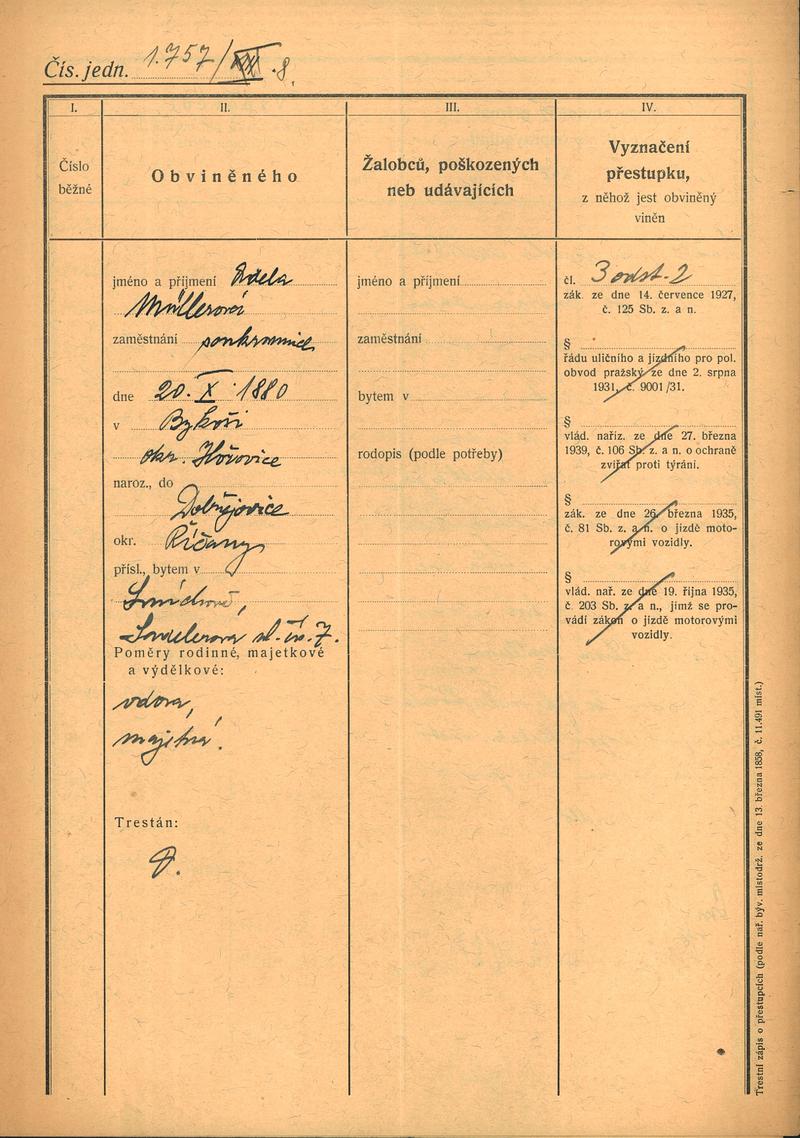 Čís. jedn. 1.757/XIX-8.
I.
Číslo
běžné
II.
Obviněného
III.
Žalobců, poškozených
neb udávajících
IV.
Vyznačení
přestupku,
z něhož jest obviněný
viněn
jméno a příjmení Adela
Müllerová
zaměstnání soukromnice
dne 20. X. 1880
v Bykoši
okr. Hořovice
naroz., do
Dobřejovice
okr. Říčany
přísl., bytem v
Smíchově,
čís. 7.
Poměry rodinné, majetkové
a výdělkové:
vdova,
majetná.
Trestán:
jméno a příjmení
zaměstnání
bytem v
rodopis (podle potřeby)
čl. 3 odst. 2
zák. ze dne 14. července 1927,
č. 125 Sb. z. a n.
§
řádu uličního a jízdního pro pol.
obvod pražský ze dne 2. srpna
1931, č. 9001/31.
§
vlád. naříz. ze dne 27. března
1939, č. 106 Sb. z. a n. o ochraně
zvířat proti týrání.
§
zák. ze dne 26. března 1935,
č. 81 Sb. z. a n. o jízdě moto-
rovými vozidly.
§
vlád. nař. ze dne 19. října 1935,
č. 203 Sb. z. a n., jímž se pro-
vádí zákon o jízdě motorovými
vozidly.
Trestní zápis o přestupcích (podle nař. býv. místodrž. ze dne 13. března 1858, č. 11.491 míst.)